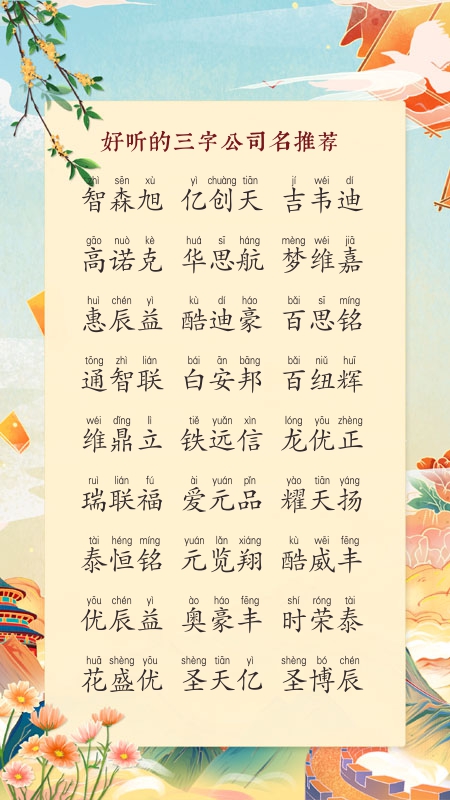 好听的三字公司名推荐
zhì sēn xù yì chuàng tiān jí wéi dí
智森旭 亿创天 吉韦迪
gāo nuò kè huá sī háng mèng wéi jiā
高诺克 华思航 梦维嘉
huì chén yì kù dí háo bǎi sī míng
惠辰益 酷迪豪 百思铭
tōng zhì lián bái ān bāng bǎi niǔ huī
通智联 白安邦 百纽辉
wéi dǐng lì tiě yuǎn xìn lóng yōu zhèng
维鼎立 铁远信 龙优正
ruì lián fú ài yuán pǐn yào tiān yáng
瑞联福 爱元品 耀天扬
tài héng míng yuán lǎn xiáng kù wēi fēng
泰恒铭 元览翔 酷威丰
yōu chén yì ào háo fēng shí róng tài
优辰益 奥豪丰 时荣泰
huā shèng yōu shèng tiān yì shèng bó chén
花盛优 圣天亿 圣博辰